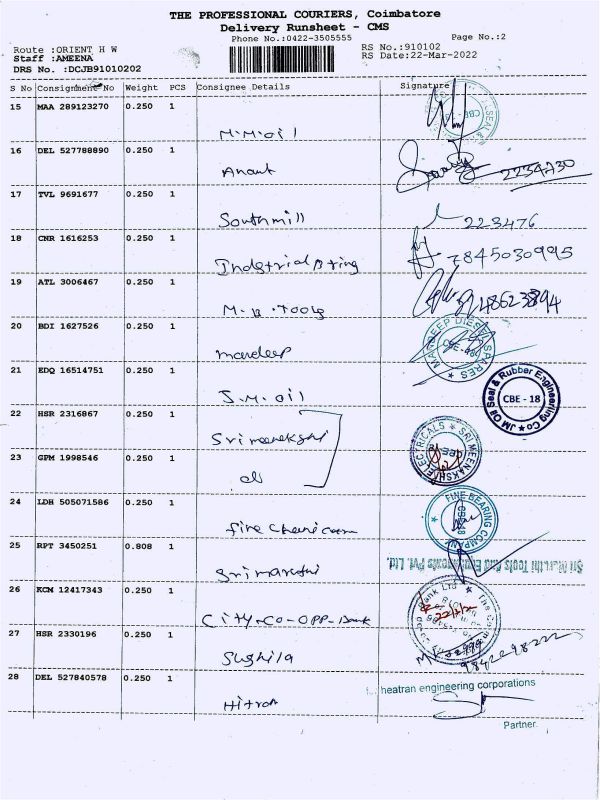 THE PROFESSIONAL COURIERS, Coimbatore
Delivery Runsheet - CMS
Phone No.:0422-3505555
Page No.:2
Route :ORIENT H W
RS No.:910102
Staff :AMEENA
RS Date:22-Mar-2022
DRS No. :DCJB91010202
S No Consignment No Weight PCS Consignee Details Signature
15 MAA 289123270 0.250 1
M.M.oil
16 DEL 527788890 0.250 1
Anant
2234730
17 TVL 9691677 0.250 1
Southmill
223476
18 CNR 1616253 0.250 1
7845030995
19 ATL 3006467 0.250 1
M.B.Tools
20 BDI 1627526 0.250 1
mandeep
MANDEEP DIESEL SPARES
21 EDQ 16514751 0.250 1
J.M.oil
JM Oil Seal & Rubber Engineering Co
CBE - 18
22 HSR 2316867 0.250 1
Sri meenakshi
SRI MEENAKSHI ELECTRICALS
23 GPM 1998546 0.250 1
24 LDH 505071586 0.250 1
FINE BEARING COMPANY
25 RPT 3450251 0.808 1
Sri maruthi
Sri Maruthi Tools And Components Pvt. Ltd.
26 KCM 12417343 0.250 1
City-Co-opp-Bank
27 HSR 2330196 0.250 1
Sushila
28 DEL 527840578 0.250 1
Hitron
engineering corporations
Partner.